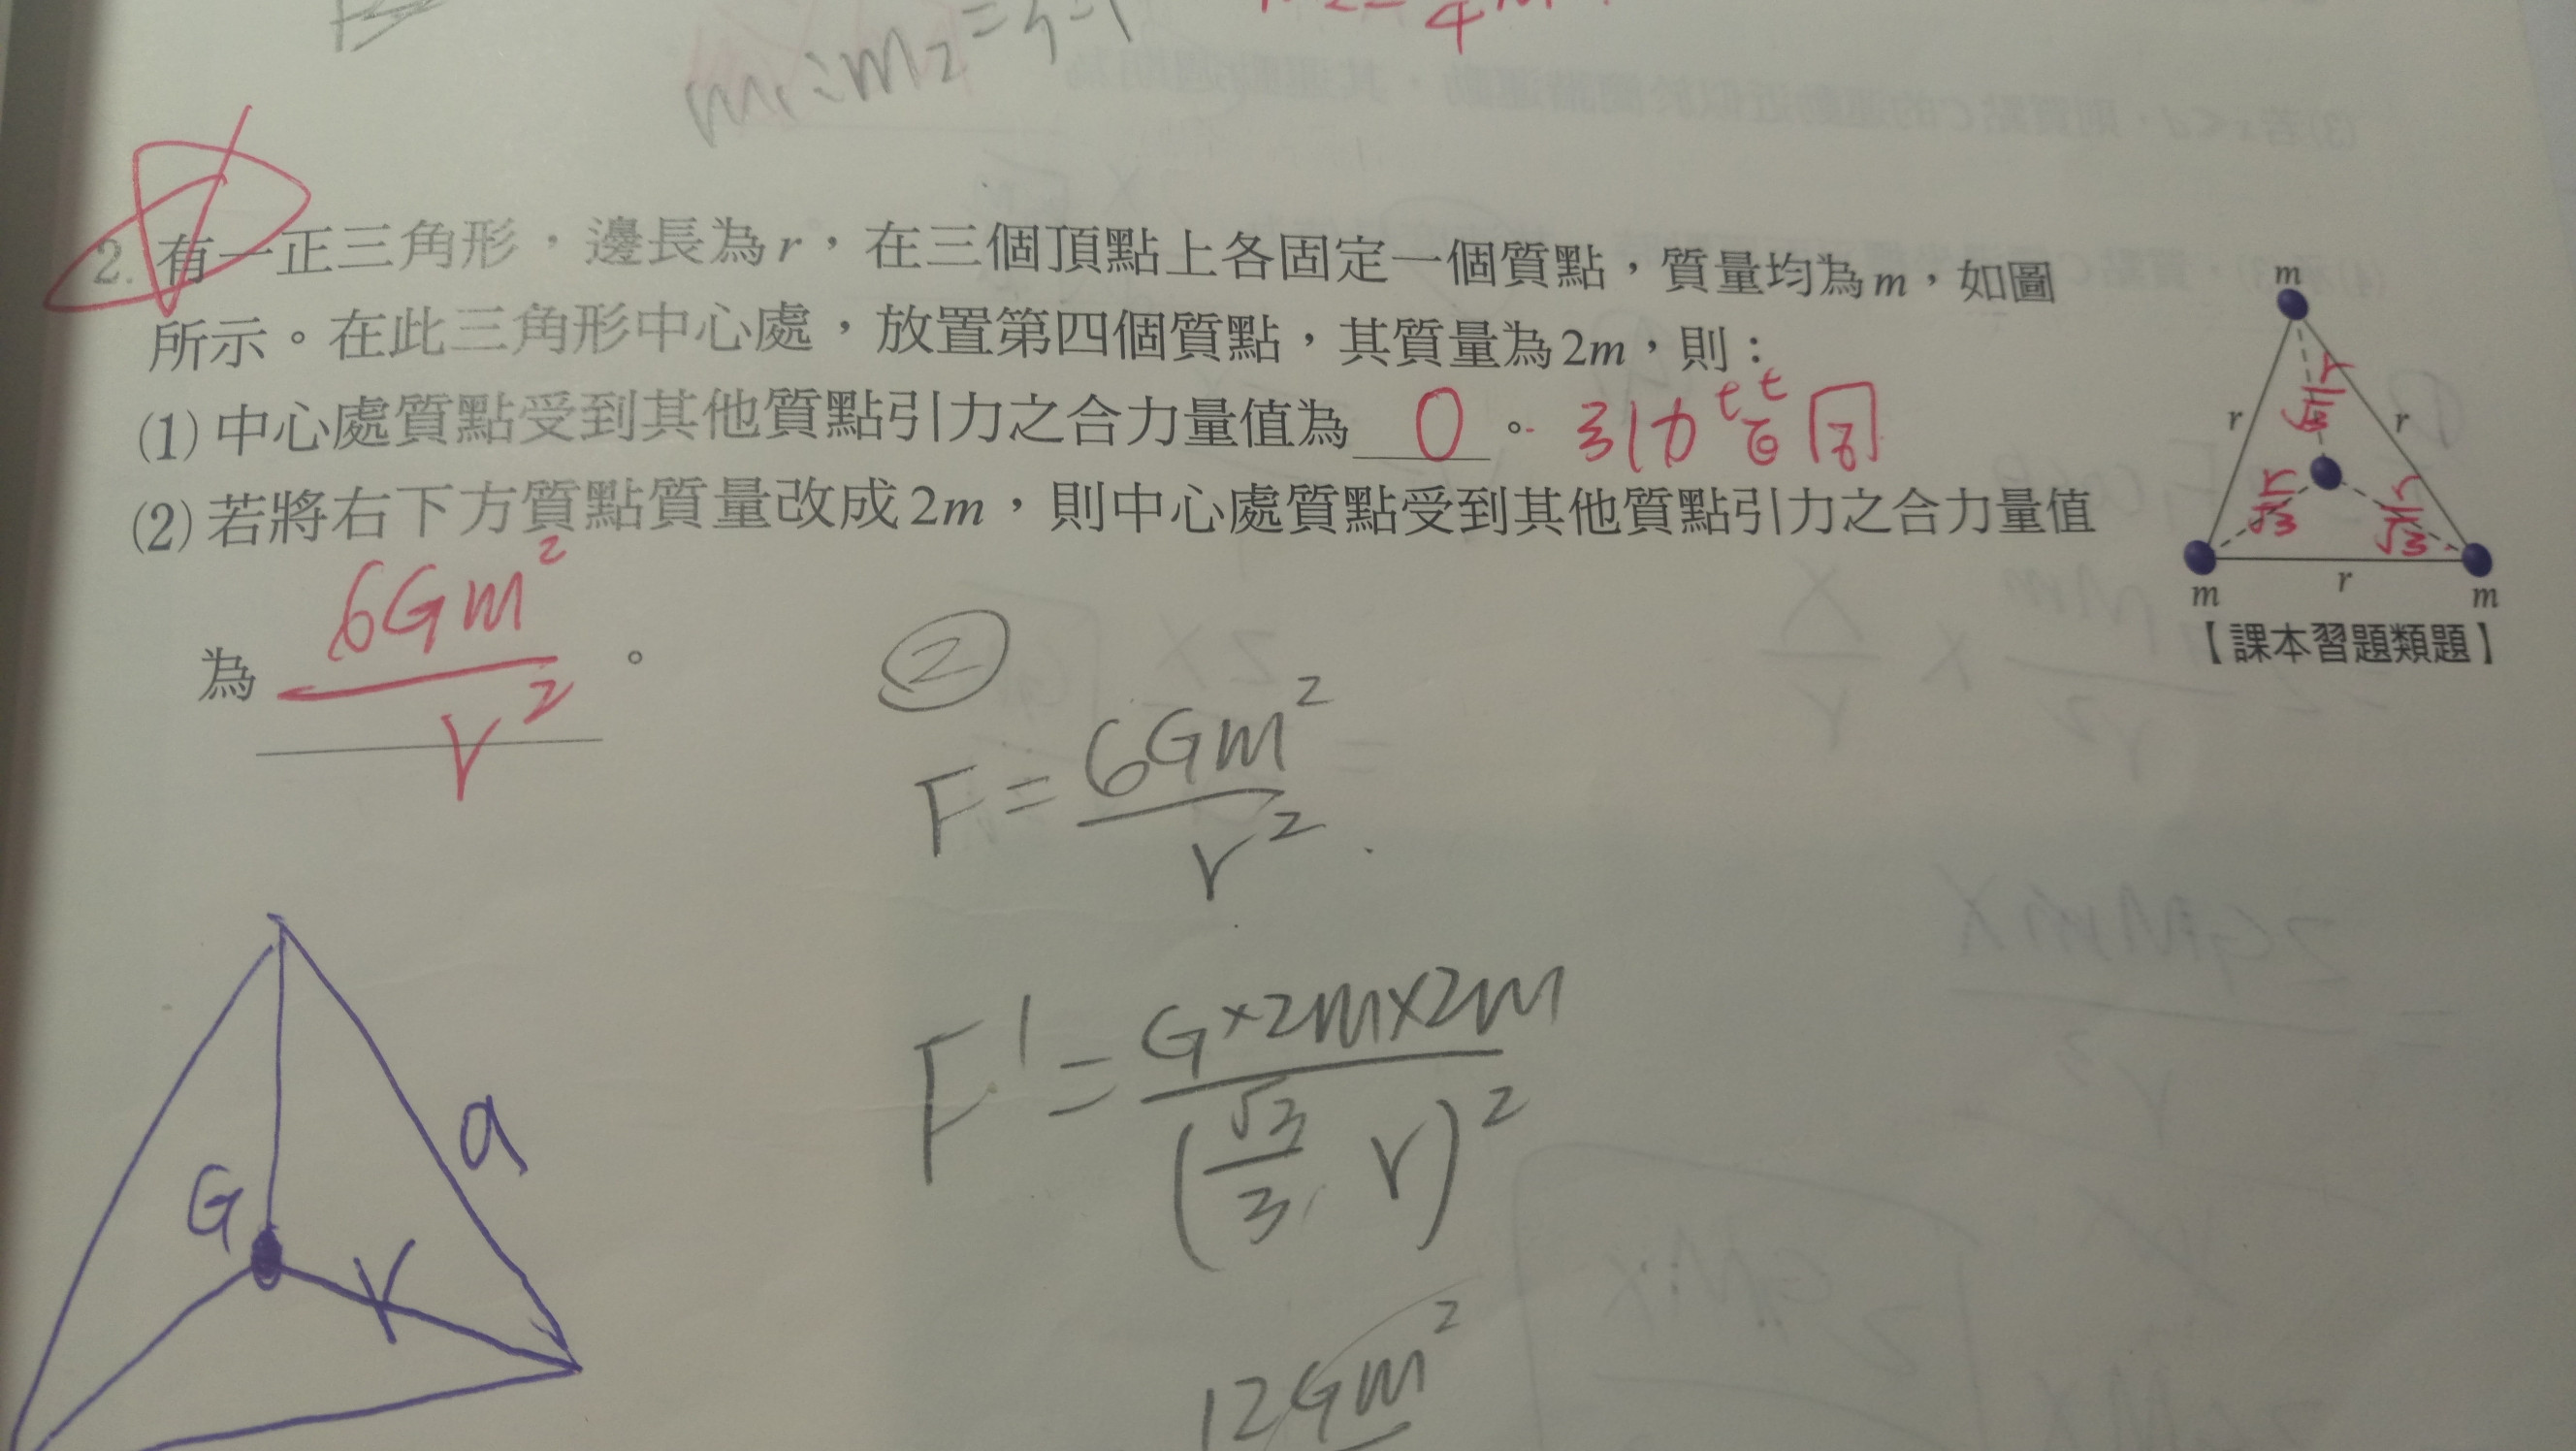 m₁:m₂=3:1
4
2. 有一正三角形，邊長為r，在三個頂點上各固定一個質點，質量均為m，如圖
所示。在此三角形中心處，放置第四個質點，其質量為2m，則：
(1) 中心處質點受到其他質點引力之合力量值為 0 。 引力
(2) 若將右下方質點質量改成2m，則中心處質點受到其他質點引力之合力量值
為 6Gm²/r² 。
m
r
r
r/√3
r/√3
r/√3
m
r
m
【課本習題類題】
②
F=6Gm²/r²
F'=G×2m×2m/(√3/3 r)²
12Gm²
a
G
r